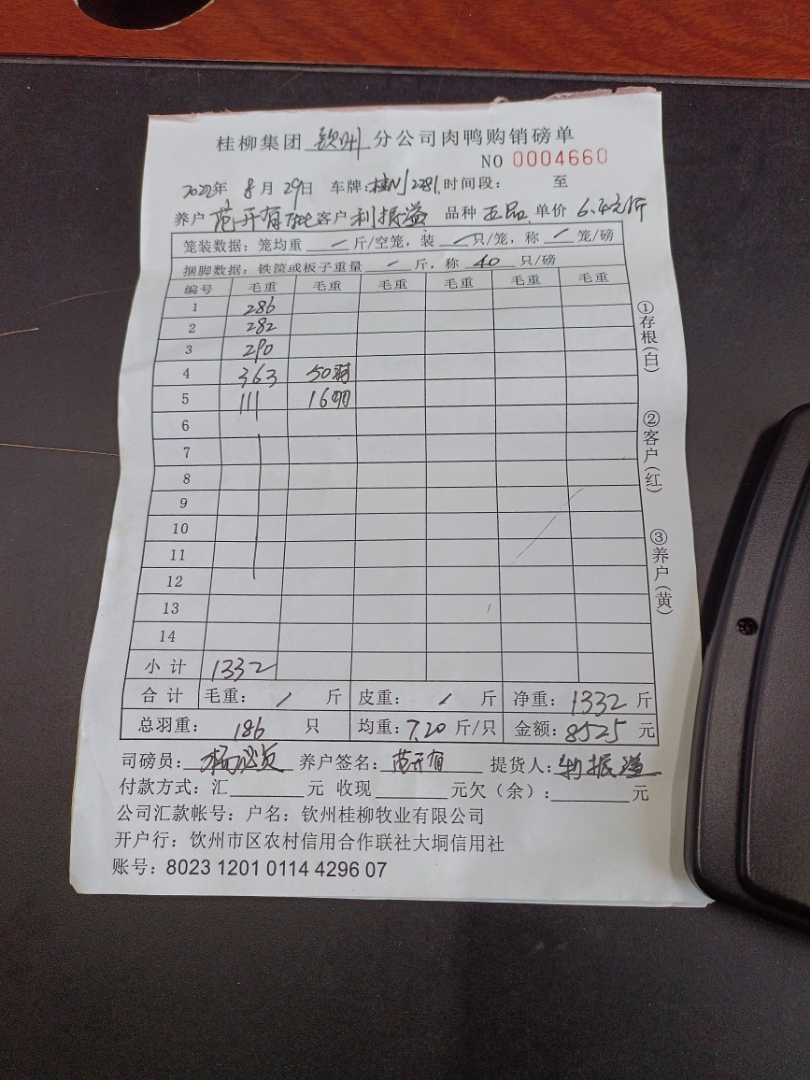 桂柳集团 钦州 分公司肉鸭购销磅单
NO 0004660
2022年 8月 29日 车牌: 桂N 2281 时间段: 至
养户 苏开有 客户 利振溢 品种 正品 单价 6.4元/斤
笼装数据: 笼均重 / 斤/空笼, 装 / 只/笼, 称 / 笼/磅
捆脚数据: 铁筐或板子重量 / 斤, 称 40 只/磅
编号 毛重 毛重 毛重 毛重 毛重 毛重
1 286
2 282
3 290
4 363 50羽
5 111 16羽
6
7
8
9
10
11
12
13
14
小计 1332
合计 毛重: / 斤 皮重: / 斤 净重: 1332 斤
总羽重: 186 只 均重: 7.20 斤/只 金额: 8525 元
司磅员: 养户签名: 苏开有 提货人: 利振溢
付款方式: 汇 元 收现 元欠(余): 元
公司汇款帐号: 户名: 钦州桂柳牧业有限公司
开户行: 钦州市区农村信用合作联社大垌信用社
账号: 8023 1201 0114 4296 07
①存根(白)
②客户(红)
③养户(黄)